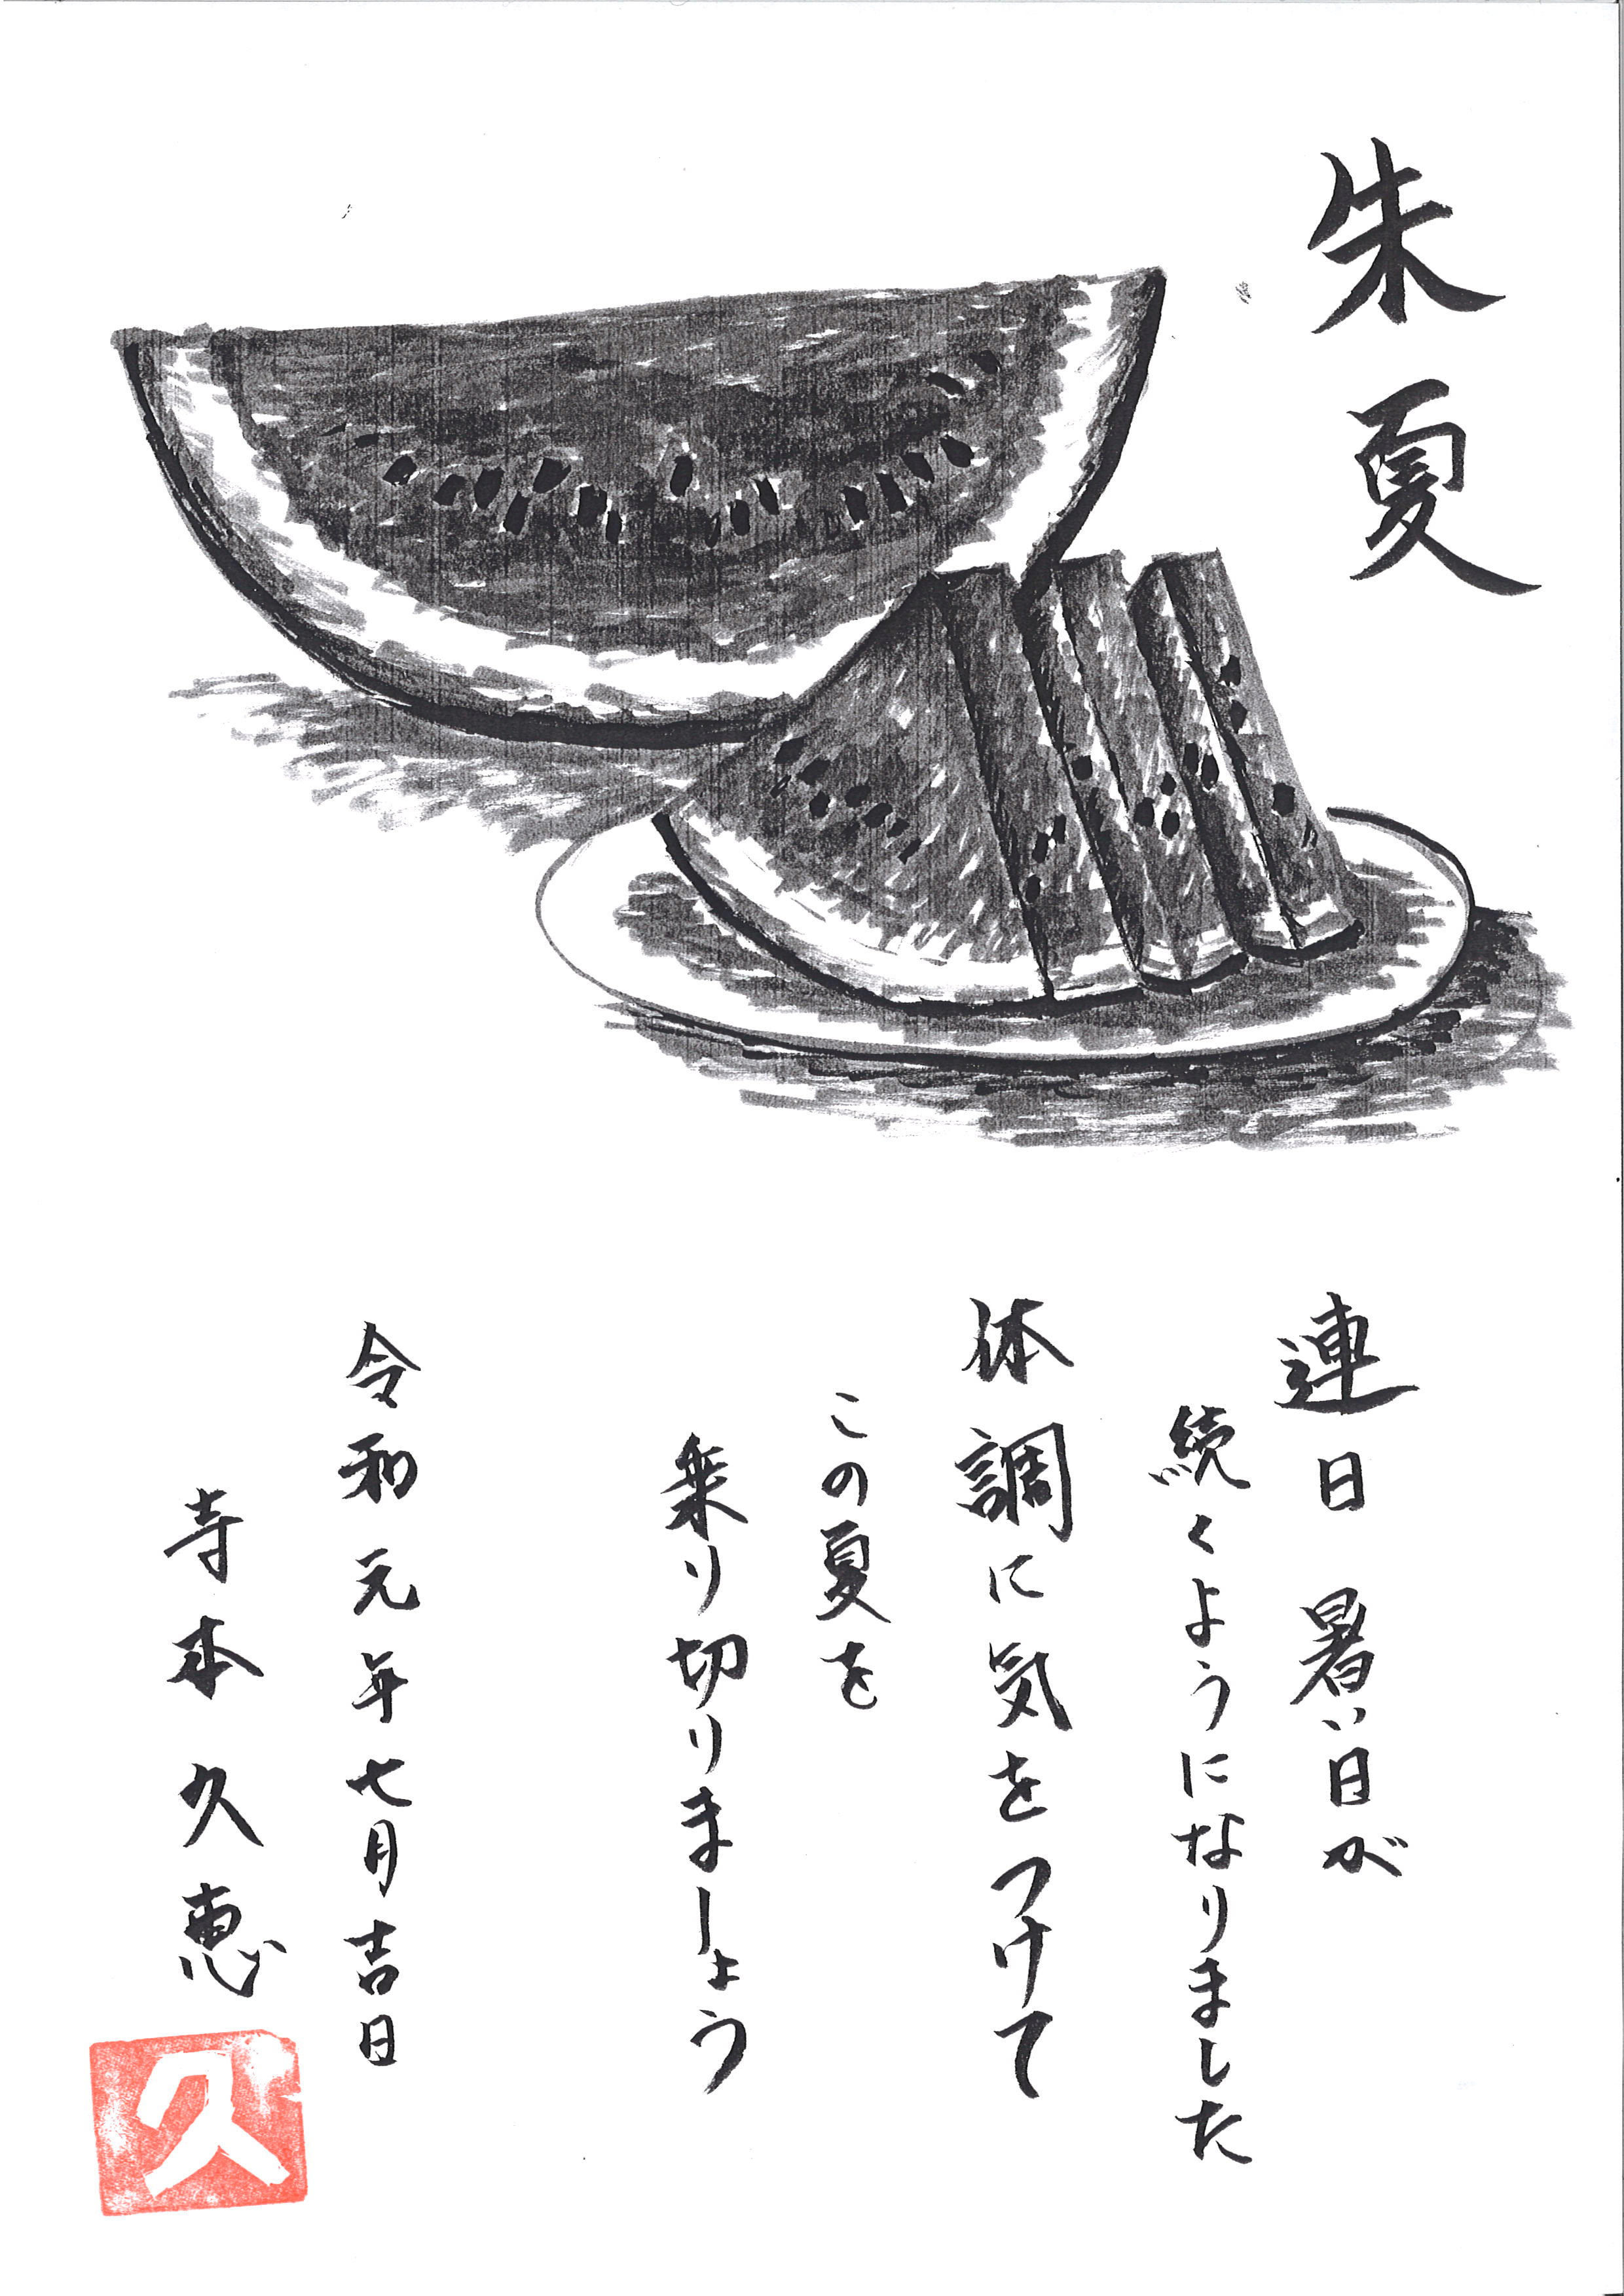 朱夏
連日 暑い日が
続くようになりました
体調に気をつけて
この夏を
乗り切りましょう
令和元年七月吉日
寺本久恵
久